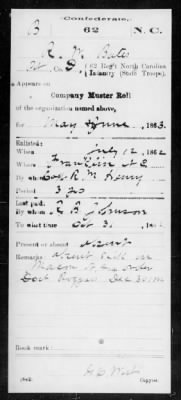 Confederate.
B 62 N. C.
R. M. Bates
Co. , 62 Reg't North Carolina
Infantry (State Troops).
Appears on
Company Muster Roll
of the organization named above,
for May & June, 1863.
Enlisted:
When July 12, 1862
Where Franklin N C
By whom R. M. Henry
Period 3
Last paid:
By whom Johnson
To what time Oct 31, 186
Present or absent Absent
Remarks: Absent
Macon N C order
Dec 30
Book mark:
Copyist.